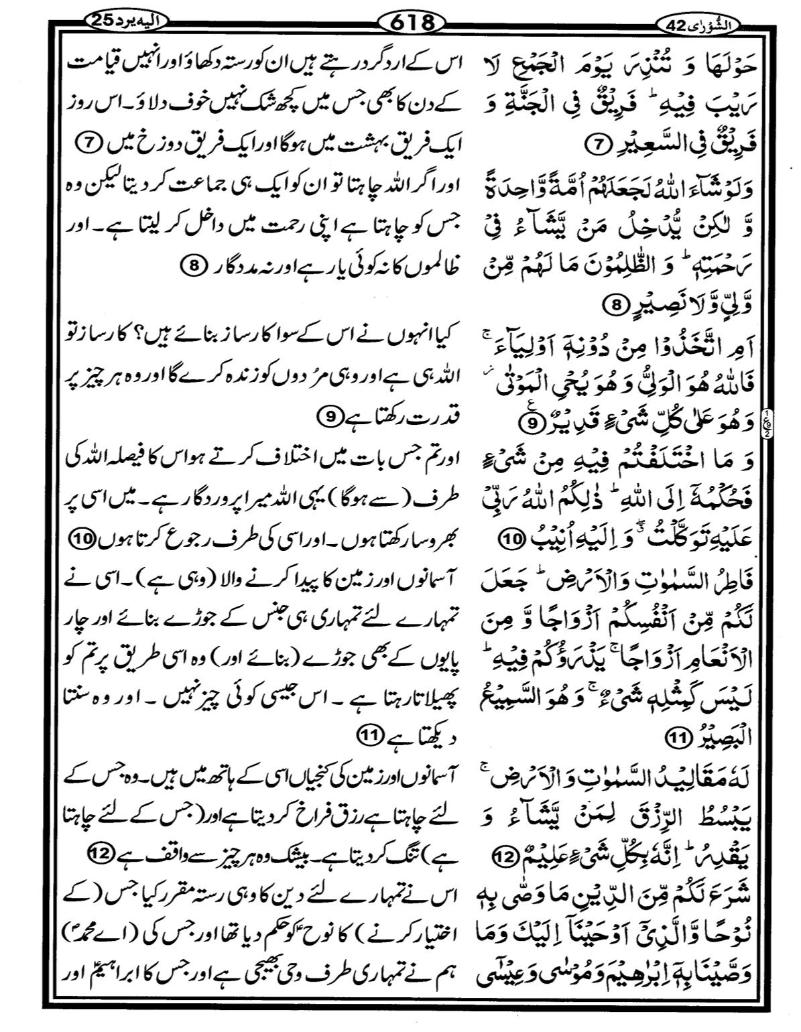 الشُّوْرٰى 42
618
اليه يرد 25
حَوْلَهَا وَ تُنْذِرَ يَوْمَ الْجَمْعِ لَا
رَيْبَ فِيْهِ ؕ فَرِيْقٌ فِى الْجَنَّةِ وَ
فَرِيْقٌ فِى السَّعِيْرِ 7
وَلَوْ شَآءَ اللّٰهُ لَجَعَلَهُمْ اُمَّةً وَّاحِدَةً
وَّ لٰكِنْ يُّدْخِلُ مَنْ يَّشَآءُ فِىْ
رَحْمَتِهٖ ؕ وَ الظّٰلِمُوْنَ مَا لَهُمْ مِّنْ
وَّلِىٍّ وَّلَا نَصِيْرٍ 8
اَمِ اتَّخَذُوْا مِنْ دُوْنِهٖۤ اَوْلِيَآءَ ۚ
فَاللّٰهُ هُوَ الْوَلِىُّ وَ هُوَ يُحْىِ الْمَوْتٰى ؗ
وَ هُوَ عَلٰى كُلِّ شَىْءٍ قَدِيْرٌ 9 ع
وَ مَا اخْتَلَفْتُمْ فِيْهِ مِنْ شَىْءٍ
فَحُكْمُهٗۤ اِلَى اللّٰهِ ؕ ذٰلِكُمُ اللّٰهُ رَبِّىْ
عَلَيْهِ تَوَكَّلْتُ ۖ وَ اِلَيْهِ اُنِيْبُ 10
فَاطِرُ السَّمٰوٰتِ وَالْاَرْضِ ؕ جَعَلَ
لَكُمْ مِّنْ اَنْفُسِكُمْ اَزْوَاجًا وَّ مِنَ
الْاَنْعَامِ اَزْوَاجًا ۚ يَذْرَؤُكُمْ فِيْهِ ؕ
لَيْسَ كَمِثْلِهٖ شَىْءٌ ۚ وَ هُوَ السَّمِيْعُ
الْبَصِيْرُ 11
لَهٗ مَقَالِيْدُ السَّمٰوٰتِ وَ الْاَرْضِ ۚ
يَبْسُطُ الرِّزْقَ لِمَنْ يَّشَآءُ وَ
يَقْدِرُ ؕ اِنَّهٗ بِكُلِّ شَىْءٍ عَلِيْمٌ 12
شَرَعَ لَكُمْ مِّنَ الدِّيْنِ مَا وَصّٰى بِهٖ
نُوْحًا وَّالَّذِىْۤ اَوْحَيْنَاۤ اِلَيْكَ وَمَا
وَصَّيْنَا بِهٖۤ اِبْرٰهِيْمَ وَمُوْسٰى وَ عِيْسٰۤى
اس کے ارد گرد رہتے ہیں ان کو رستہ دکھاؤ اور انہیں قیامت
کے دن کا بھی جس میں کچھ شک نہیں خوف دلاؤ۔ اس روز
ایک فریق بہشت میں ہوگا اور ایک فریق دوزخ میں 7
اور اگر اللہ چاہتا تو ان کو ایک ہی جماعت کر دیتا لیکن وہ
جس کو چاہتا ہے اپنی رحمت میں داخل کر لیتا ہے۔ اور
ظالموں کا نہ کوئی یار ہے اور نہ مددگار 8
کیا انہوں نے اس کے سوا کارساز بنائے ہیں؟ کارساز تو
اللہ ہی ہے اور وہی مُردوں کو زندہ کرے گا اور وہ ہر چیز پر
قدرت رکھتا ہے 9
اور تم جس بات میں اختلاف کرتے ہو اس کا فیصلہ اللہ کی
طرف (سے ہوگا) یہی اللہ میرا پروردگار ہے۔ میں اسی پر
بھروسا رکھتا ہوں۔ اور اسی کی طرف رجوع کرتا ہوں 10
آسمانوں اور زمین کا پیدا کرنے والا (وہی ہے)۔ اسی نے
تمہارے لئے تمہاری ہی جنس کے جوڑے بنائے اور چار
پایوں کے بھی جوڑے (بنائے اور) وہ اسی طریق پر تم کو
پھیلاتا رہتا ہے ۔ اس جیسی کوئی چیز نہیں ۔ اور وہ سنتا
دیکھتا ہے 11
آسمانوں اور زمین کی کنجیاں اسی کے ہاتھ میں ہیں۔ وہ جس کے
لئے چاہتا ہے رزق فراخ کر دیتا ہے اور (جس کے لئے چاہتا
ہے) تنگ کر دیتا ہے۔ بیشک وہ ہر چیز سے واقف ہے 12
اس نے تمہارے لئے دین کا وہی رستہ مقرر کیا جس (کے
اختیار کرنے ) کا نوحؑ کو حکم دیا تھا اور جس کی (اے محمدؐ)
ہم نے تمہاری طرف وحی بھیجی ہے اور جس کا ابراہیمؑ اور